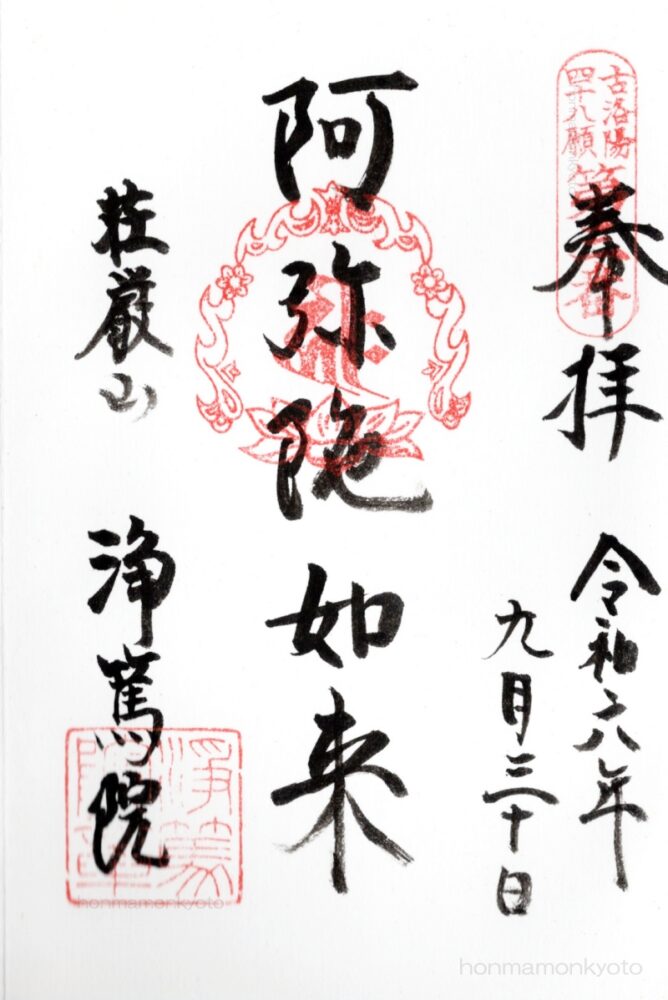 古洛陽
四十八願
奉拝
令和六年
九月三十日
阿弥陀如来
荘厳山
浄篤院
honmamonkyoto
honmamonkyoto